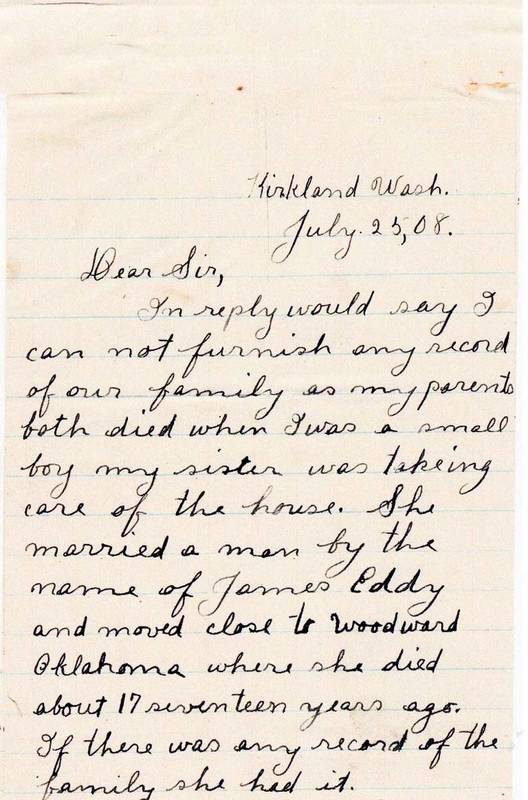 Kirkland Wash.
July. 25, 08.
Dear Sir,
In reply would say I
can not furnish any record
of our family as my parents
both died when I was a small
boy my sister was takeing
care of the house. She
married a man by the
name of James Eddy
and moved close to Woodward
Oklahoma where she died
about 17 seventeen years ago.
If there was any record of the
family she had it.